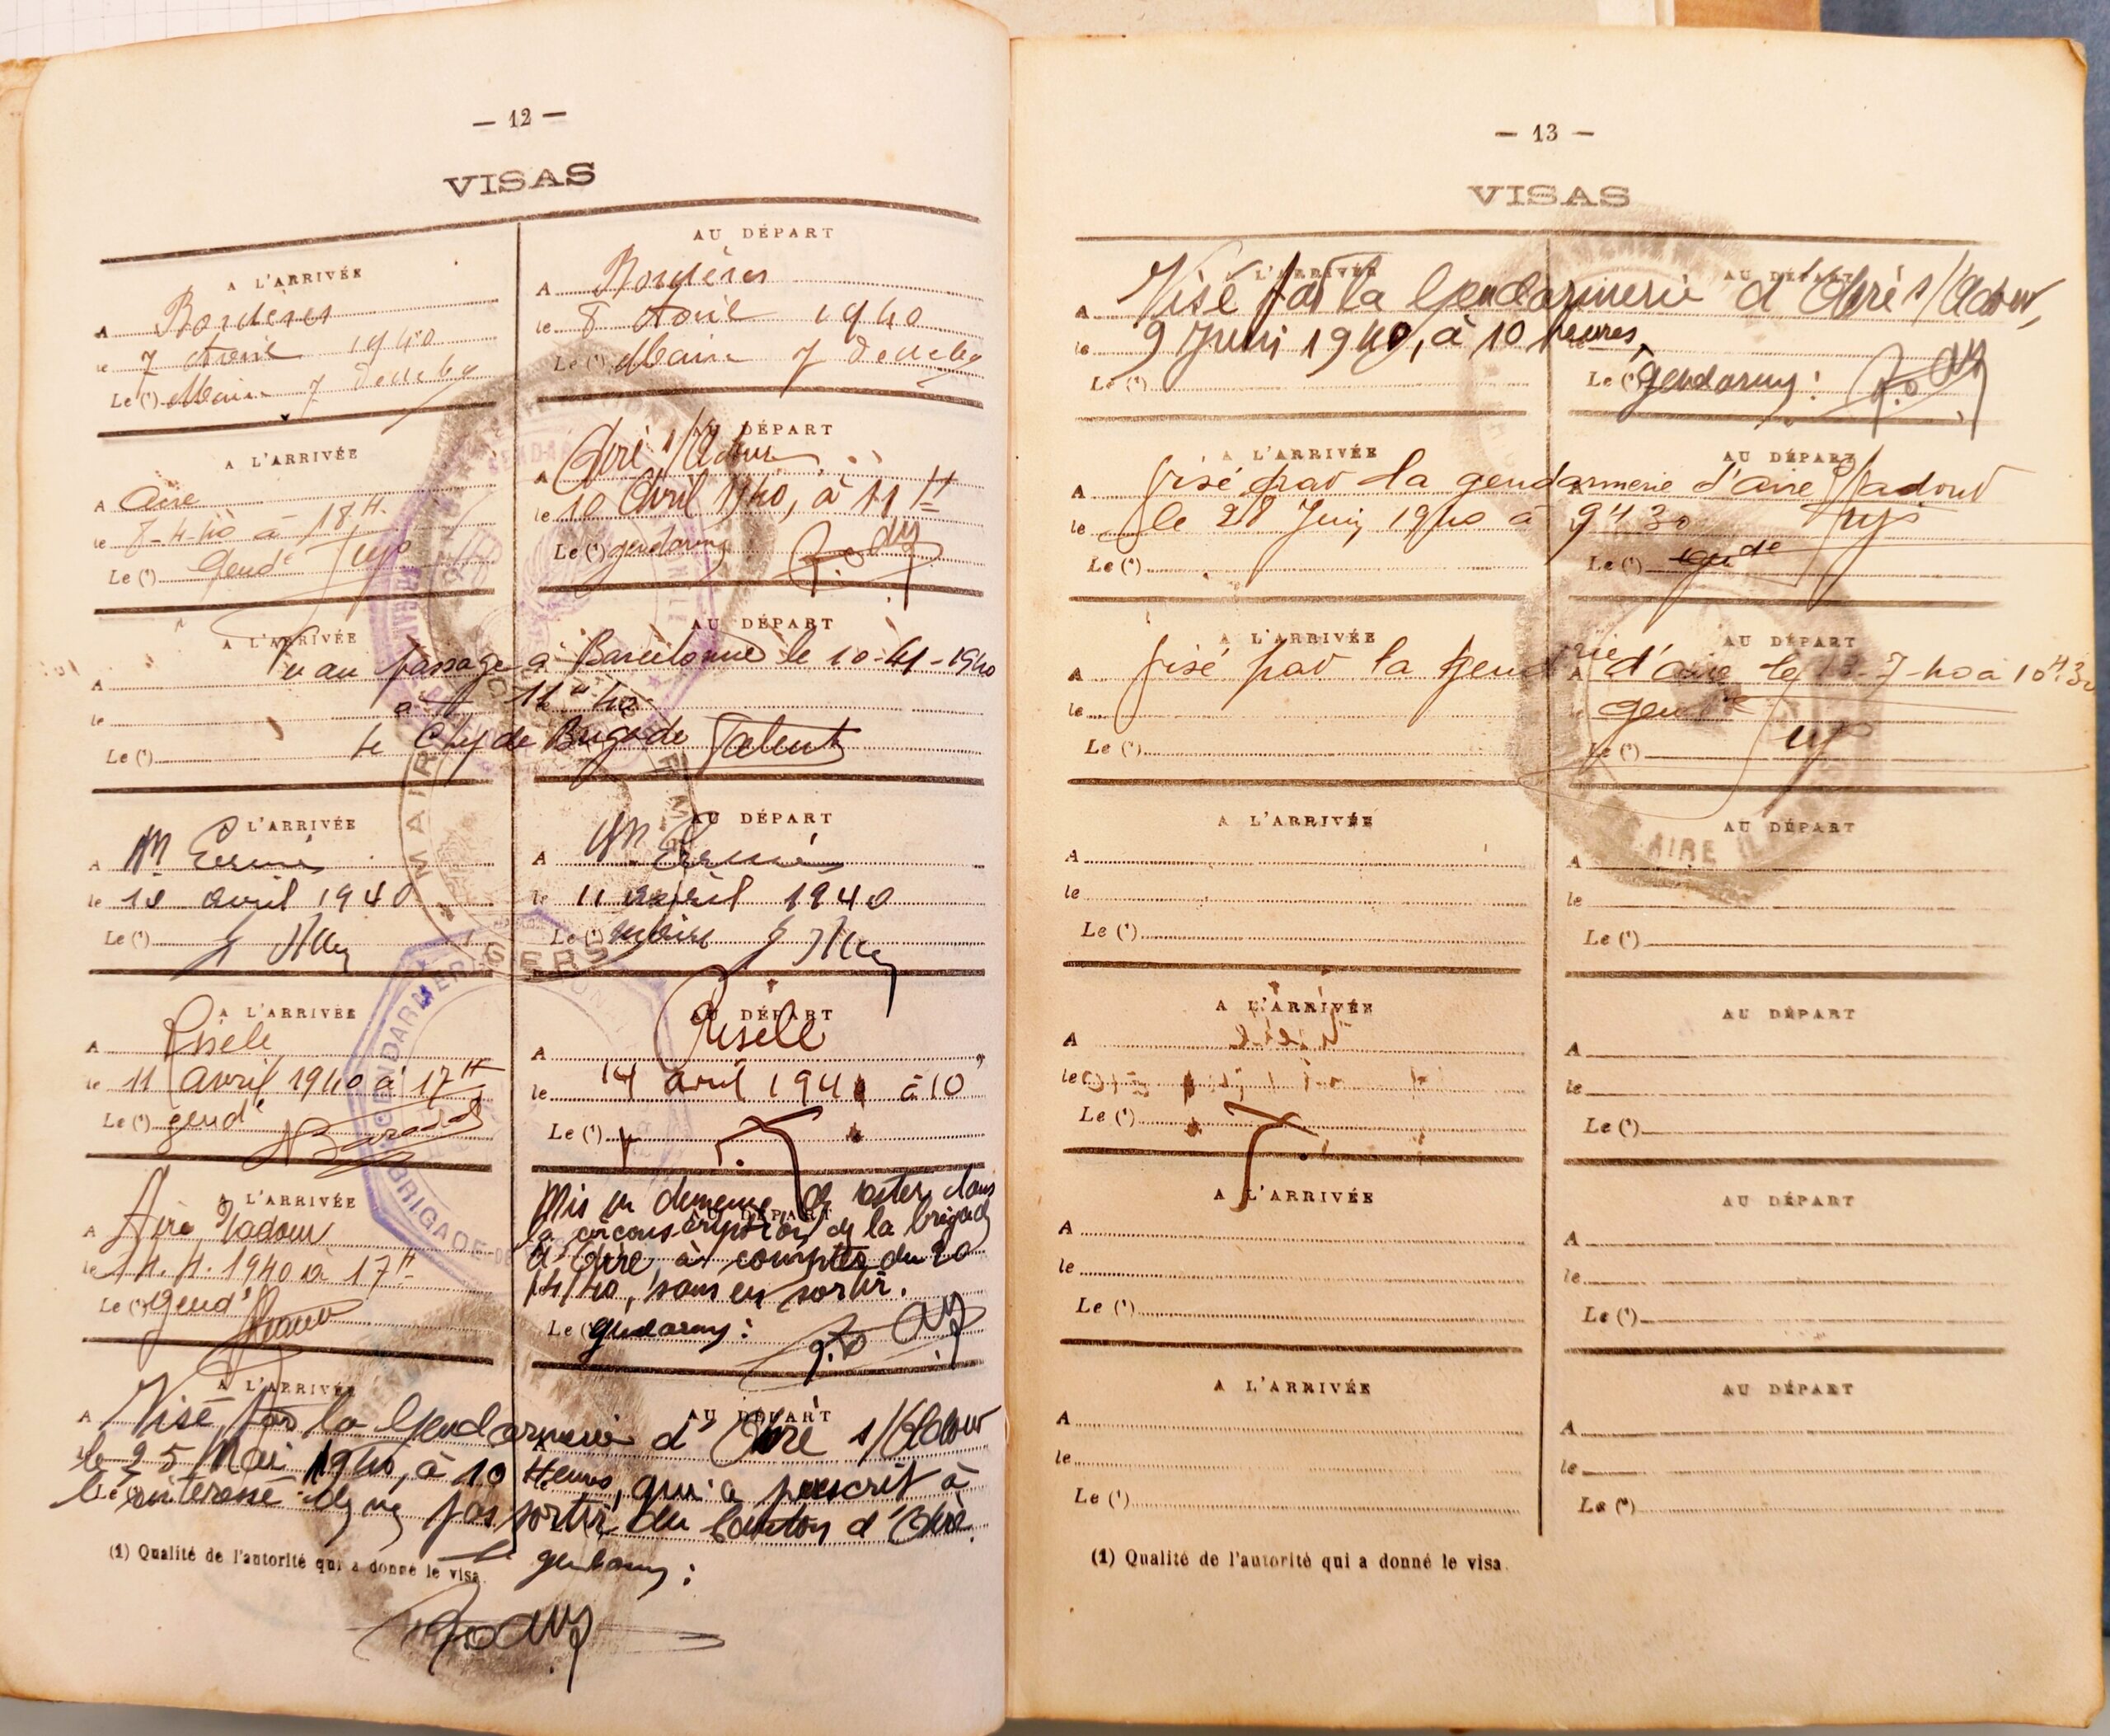 — 12 —
VISAS
A L'ARRIVÉE
A Bordères
le 7 Avril 1940
Le (1) Maire
AU DÉPART
A Bordères
le 8 Avril 1940
Le (1) Maire
A L'ARRIVÉE
A Aire
le 8-4-40 à 18 H
Le (1) Gend
AU DÉPART
A Aire s/Adour
le 10 Avril 1940, à 11 H
Le (1) gendarme
A L'ARRIVÉE
AU DÉPART
A Vu au passage à Barcelonne le 10-4-1940
le à 11 H 40
Le (1) le Chef de Brigade
A L'ARRIVÉE
A
le 10 avril 1940
Le (1)
AU DÉPART
A
le 11 avril 1940
Le (1) maire
A L'ARRIVÉE
A Riscle
le 11 Avril 1940 à 17 H
Le (1) gend
AU DÉPART
A Riscle
le 14 avril 194 à 10
Le (1)
A L'ARRIVÉE
A Aire s/adour
le 14.4.1940 à 17 H
Le (1) gend
AU DÉPART
Mis en demeure de rester dans
la circonscription de la brigade
d'Aire, à compter du 20
/4/40, sans en sortir.
Le (1) gendarme :
A L'ARRIVÉE
AU DÉPART
A Visé par la Gendarmerie d'Aire s/Adour
le 25 Mai 1940, à 10 Heures, qui a prescrit à
l'intéressé de ne pas sortir du Canton d'Aire.
(1) Qualité de l'autorité qui a donné le visa.
le gendarme :
— 13 —
VISAS
A L'ARRIVÉE
AU DÉPART
A Visé par la Gendarmerie d'Aire s/Adour,
le 9 Juin 1940, à 10 heures,
Le (1)
Le (1) gendarme :
A L'ARRIVÉE
AU DÉPART
A Visé par la gendarmerie d'aire s/adour
le le 28 Juin 1940 à 9 H 30
Le (1)
Le (1) gend
A L'ARRIVÉE
AU DÉPART
A Visé par la gendrie d'aire le 13-7-40 à 10 H 30
le gend
Le (1)
Le (1)
A L'ARRIVÉE
A
le
Le (1)
AU DÉPART
A
le
Le (1)
A L'ARRIVÉE
A
le
Le (1)
AU DÉPART
A
le
Le (1)
A L'ARRIVÉE
A
le
Le (1)
AU DÉPART
A
le
Le (1)
A L'ARRIVÉE
A
le
Le (1)
AU DÉPART
A
le
Le (1)
(1) Qualité de l'autorité qui a donné le visa.